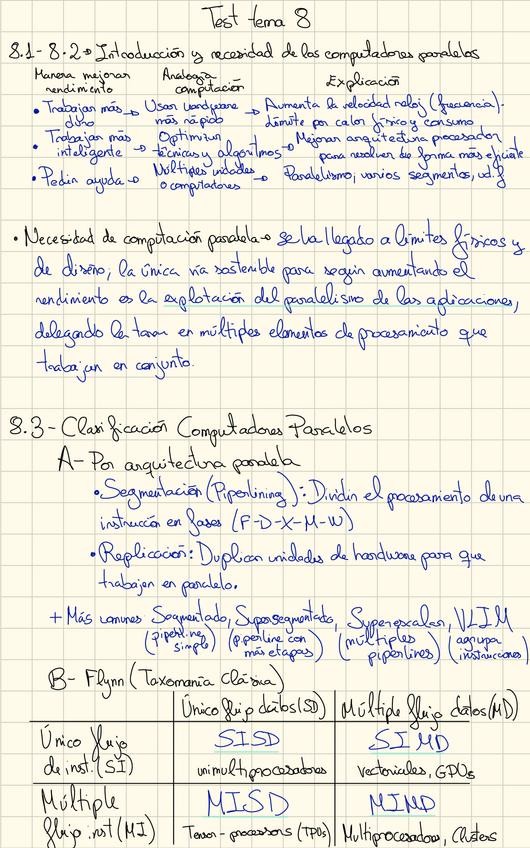 Test tema 8
8.1 - 8.2 → Introducción y necesidad de los computadores paralelos
Manera mejorar rendimiento
Analogía computación
Explicación
• Trabajar más duro → Usar hardware más rápido → Aumenta la velocidad reloj (frecuencia). Límite por calor físico y consumo
• Trabajar más inteligente → Optimizan técnicas y algoritmos → Mejorar arquitectura procesador para resolver de forma más eficiente
• Pedir ayuda → Múltiples unidades o computadores → Paralelismo; varios segmentos, ud. f
• Necesidad de computación paralela → se ha llegado a límites físicos y
de diseño, la única vía sostenible para seguir aumentando el
rendimiento es la explotación del paralelismo de las aplicaciones,
delegando la tarea en múltiples elementos de procesamiento que
trabajan en conjunto.
8.3 - Clasificación Computadores Paralelos
A - Por arquitectura paralela
• Segmentación (Piperlining): Dividir el procesamiento de una
instrucción en fases (F-D-X-M-W)
• Replicación: Duplican unidades de hardware para que
trabajen en paralelo.
+ Más comunes Segmentado, Supersegmentado, Superescalar, VLIM
(piperline simple) (piperline con más etapas) (múltiples piperlines) (agrupa instrucciones)
B - Flynn (Taxomanía Clásica)
Único flujo datos (SD)
Múltiple flujo datos (MD)
Único flujo de inst. (SI)
SISD
unimultiprocesadores
SIMD
vectoriales, GPUs
Múltiple flujo inst (MI)
MISD
Tensor-processors (TPUs)
MIMD
Multiprocesadores, Clusters